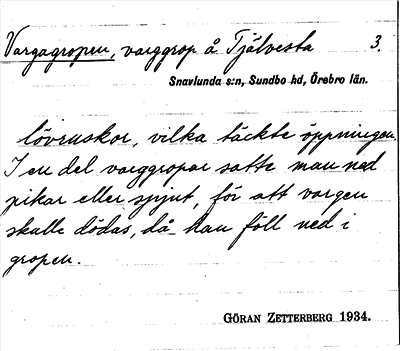 Vargagropen, varggrop å Tjälvesta 3.
Snavlunda s:n, Sundbo hd, Örebro län.
lövruskor, vilka täckte öppningen.
I en del varggropar satte man ned
pikar eller spjut, för att vargen
skulle dödas, då han föll ned i
gropen.
GÖRAN ZETTERBERG 1934.